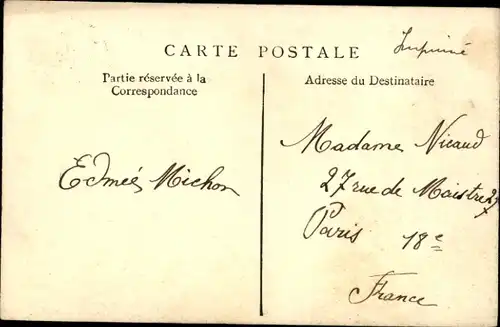 CARTE POSTALE
Imprimé
Partie réservée à la
Correspondance
Adresse du Destinataire
Edmée Michon
Madame Nicaud
27 rue de Maistre 27
Paris 18e
France